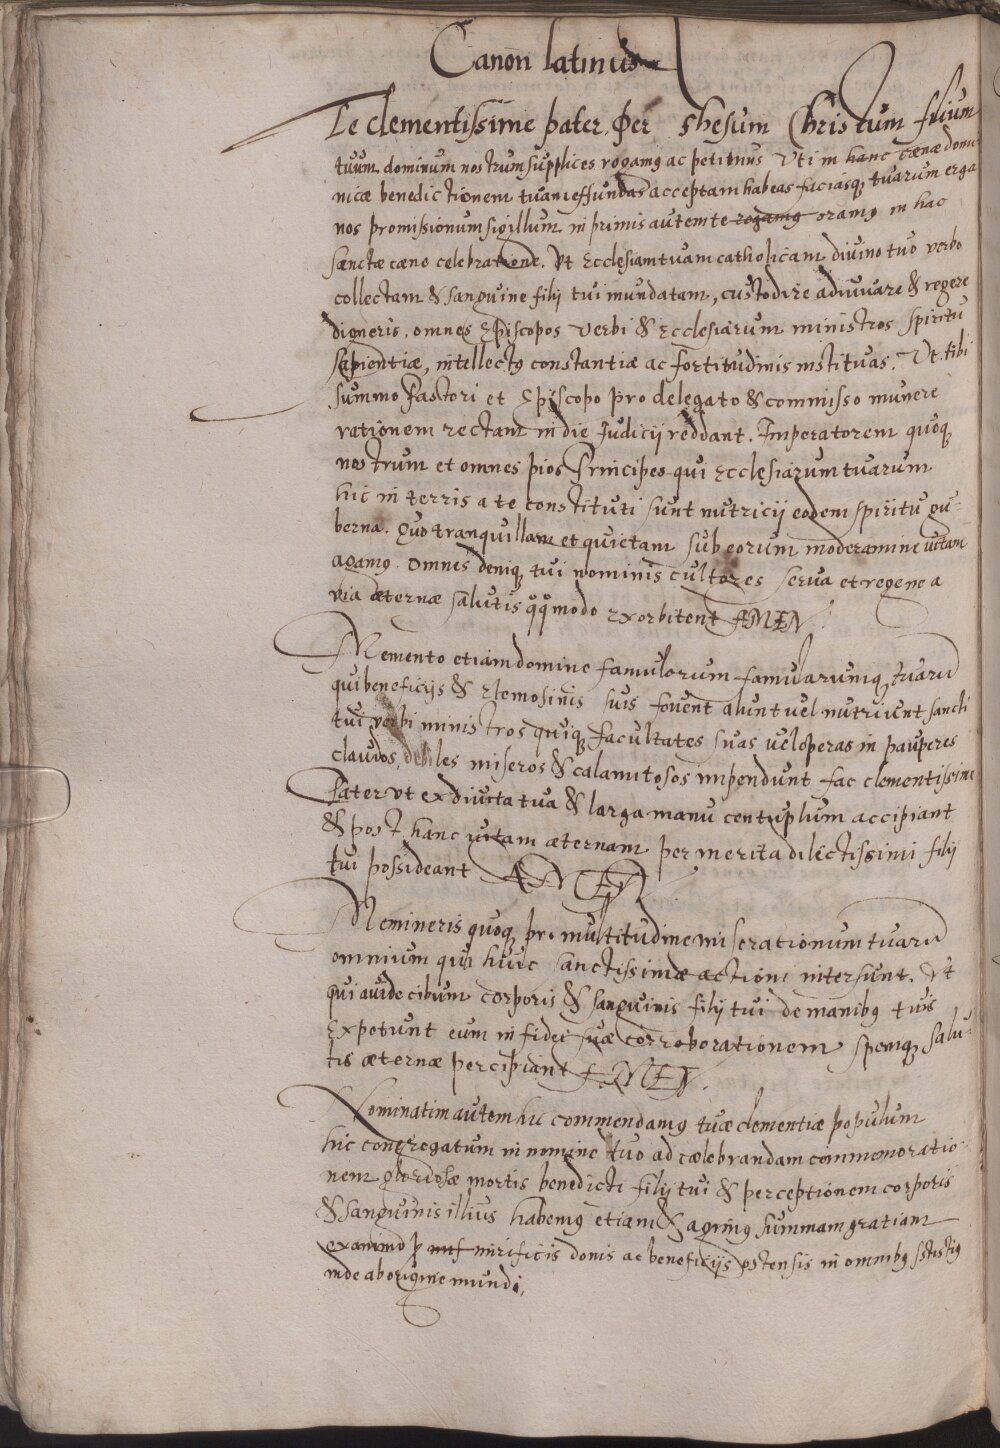 Canon latinus
Te clementissime pater, Per Ihesum Christum filium
tuum dominum nostrum supplices rogamꝰ ac petimus Uti in hanc cænæ domi
nicæ benedictionem tuam effundas acceptam habeas faciasq, tuarum erga
nos promissionum sigillum in primis autem te rogamꝰ oramꝰ in hac
sanctæ cæne celebratione. Ut Ecclesiam tuam catholicam divino tuo verbo
collectam & sanguine filij tui mundatam, custodire adiuvare & regere
digneris. omnes Episcopos verbi & Ecclesiarum ministros spiritu
sapientiæ, intellectꝰ constantiæ ac fortitudinis instituas. Ut tibi
summo Pastori et Episcopo pro delegato & commisso munere
rationem rectam in die Iudicij reddant. Imperatorem quoq,
nostrum et omnes pios Principes qui Ecclesiarum tuarum
hic in terris a te constituti sunt nutricij eodem spiritu gu=
berna. Quo tranquillam et quietam sub eorum moderamine vitam
agamꝰ. omnes deniq, tui nominis cultores serva et rege ne a
via æternæ salutis q̊q̊modo exorbitent AMEN
Memento etiam domine famulorum famularumq, tuarũ
qui beneficijs & Elemosinis suis fovent alunt vel nutriunt sancti
tui verbi ministros quiq, facultates suas vel operas in pauperes
claudos, debiles miseros & calamitosos impendunt fac clementissime
Pater ut ex divite tua & larga manu centuplum accipiant
& post hanc vitam æternam per merita dilectissimi filij
tui possideant AMEN
Memineris quoq, pro multitudine miserationum tuarũ
omnium qui huic sanctissimæ actioni intersunt. Ut
qui avide cibum corporis & sanguinis filij tui de manibꝰ tuis
Expetunt eum in fidei suæ corroborationem spemq, salu=
tis æternæ percipiant AMEN.
Nominatim autem hic commendamꝰ tuæ clementiæ populum
hic congregatum in nomine tuo ad cælebrandam commemoratio
nem gloriosæ mortis benedicti filij tui & perceptionem corporis
& sanguinis illius habemꝰ etiam & agimꝰ summam gratiam
ex animo p mirificis donis ac beneficijs ostensis in omnibꝰ
inde ab origine mundi,